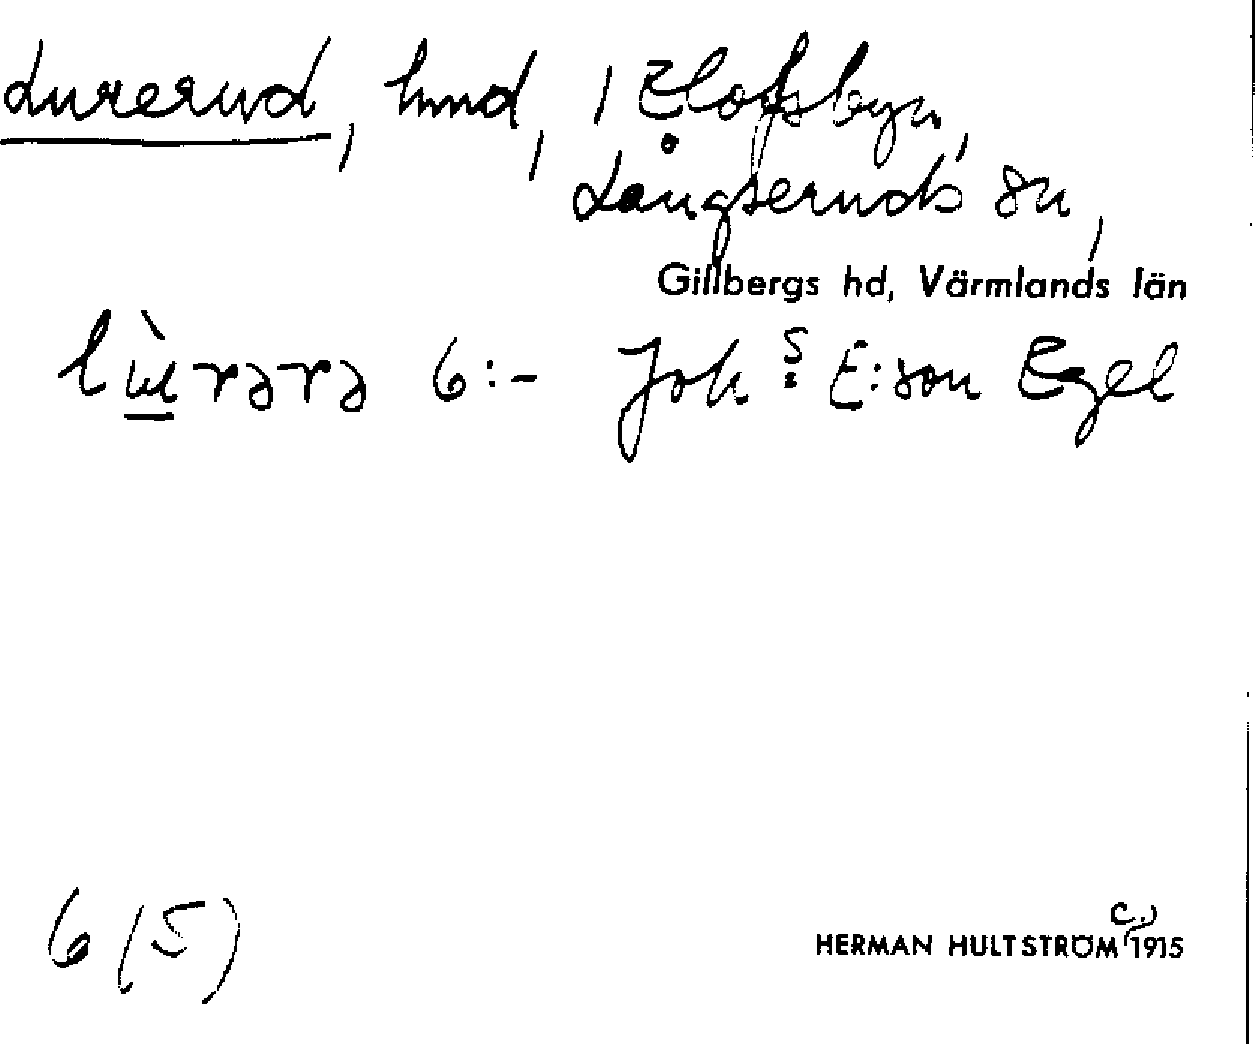 Lurerud, hmd, i Elofsbyn,
Långseruds sn,
Gillbergs hd, Värmlands län
6:- Joh:s E:son Egel
6 (5)
HERMAN HULTSTRÖM (c.) 1915